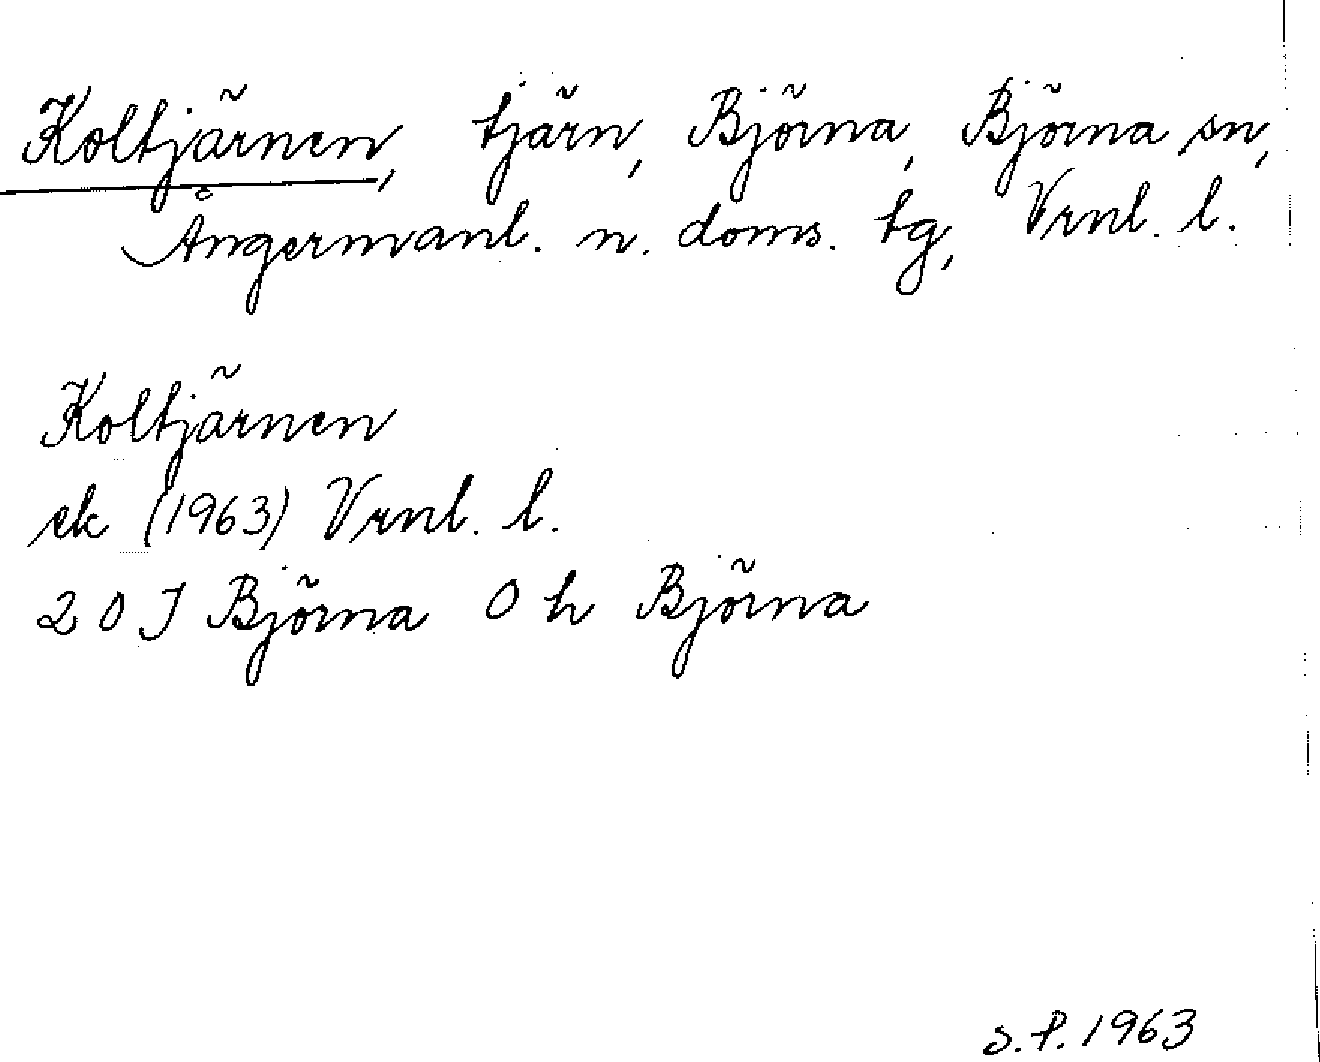 Koltjärnen, tjärn, Björna, Björna sn,
Ångermanl. n. doms. tg, Vrnl. l.
Koltjärnen
ek (1963) Vrnl. l.
20 J Björna 0 h Björna
S.P. 1963